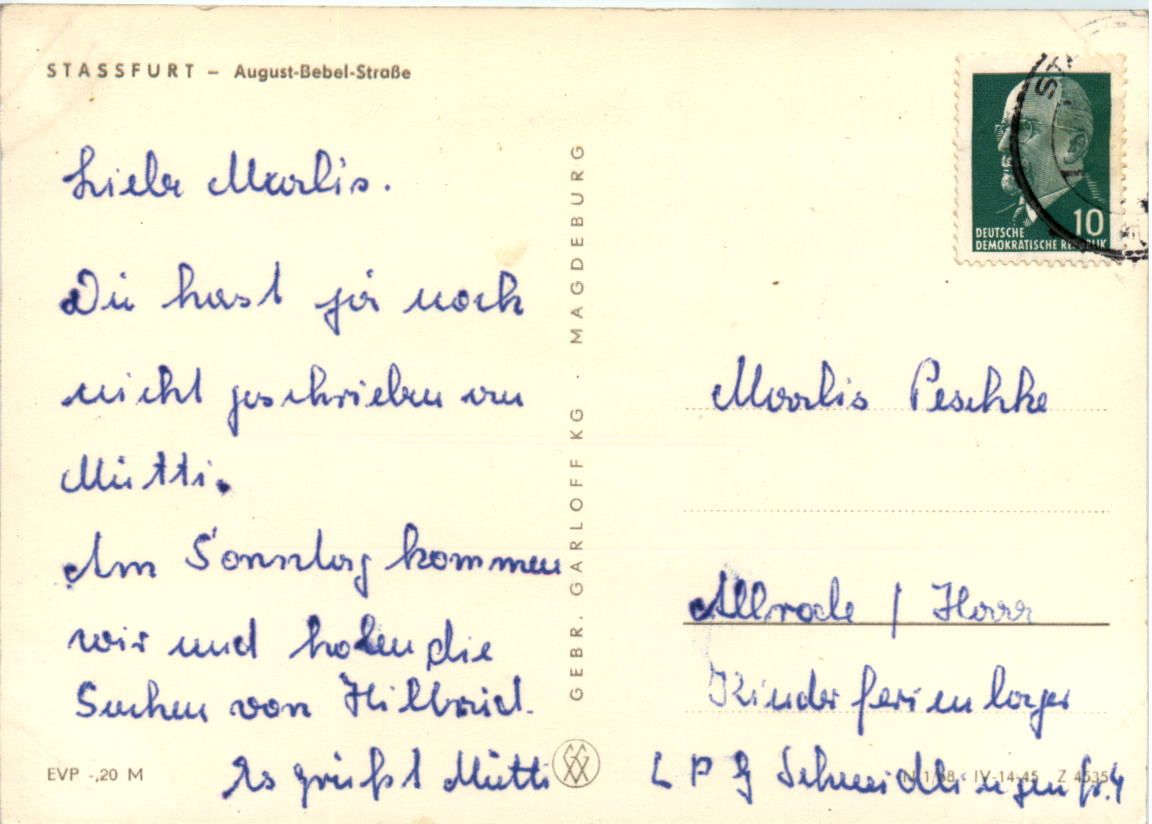 STASSFURT – August-Bebel-Straße
Liebe Marlis.
Du hast ja noch
nicht geschrieben an
Mutti.
Am Sonntag kommen
wir und holen die
Sachen von Hilbrid.
Es grüßt Mutti
EVP -,20 M
GEBR. GARLOFF KG · MAGDEBURG
10
DEUTSCHE
DEMOKRATISCHE REPUBLIK
Marlis Peschke
Allrode / Harz
Kinderferienlager
LPG Schneidlingen Gr. 4
IV-14-45 Z 4535